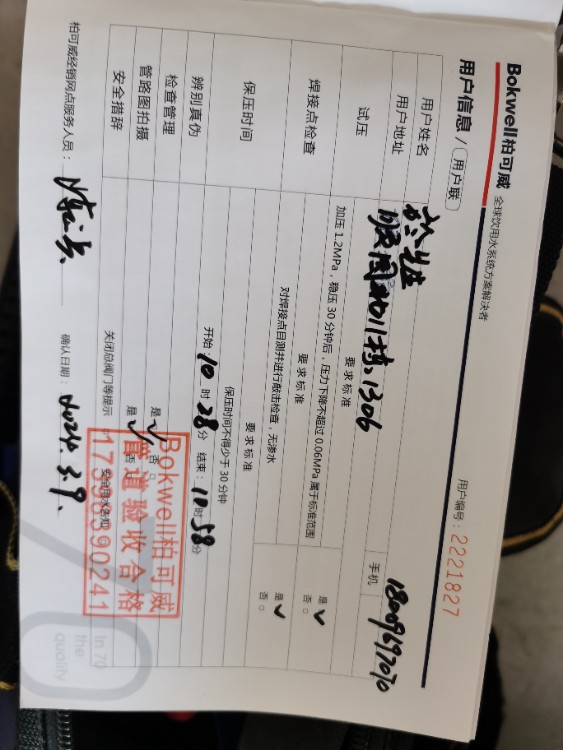 Bokwell柏可威 全球饮用水系统方案解决者
用户信息/用户联 用户编号:2221827
用户姓名
用户地址 1306 手机
试压 要求标准
加压1.2MPa,稳压30分钟后,压力下降不超过0.06MPa属于标准范围 是 ✓ 否 □
焊接点检查 要求标准
对焊接点目测并进行敲击检查,无渗水 是 ✓ 否 □
保压时间 要求标准
保压时间不得少于30分钟
开始:10时28分 结束:10时58分
辨别真伪
检查管理 是 ✓ 否 □
管路图拍摄 是 ✓ 否
安全措辞 关闭总阀门等提示
柏可威经销网点服务人员: 确认日期:2024.3.9.
Bokwell柏可威
管道验收合格
17398390241
In 70
the
quality